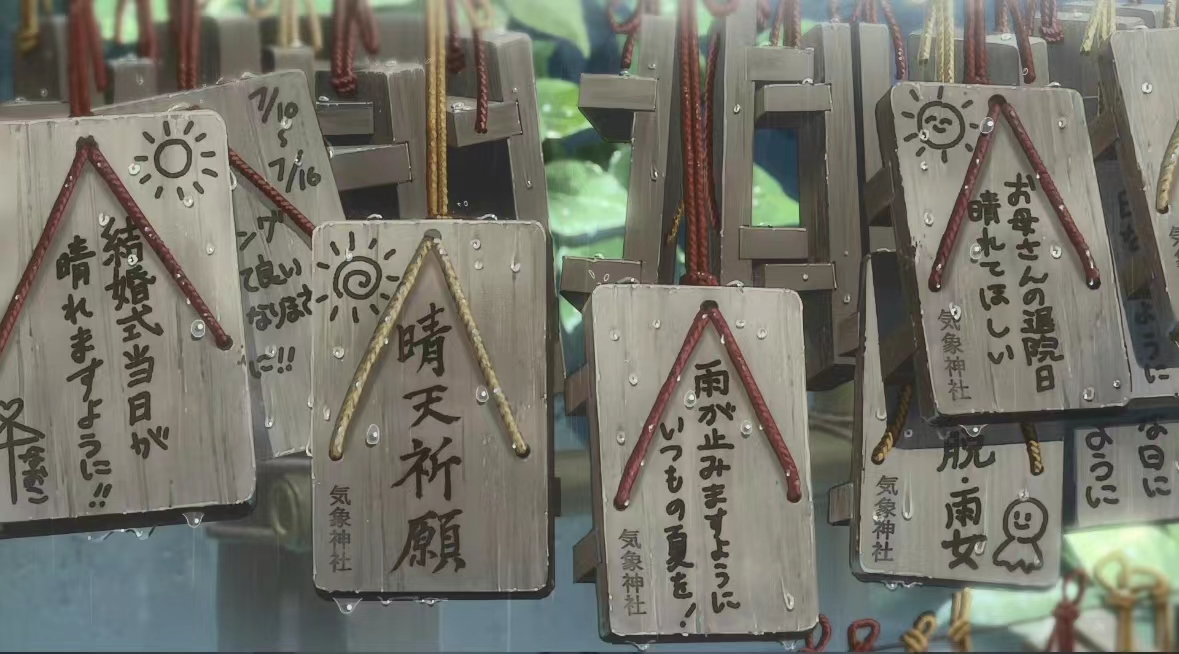 結婚式当日が
晴れますように!!
なおこ
7/10
~
7/16
て良い
に!!
晴天祈願
気象神社
雨が止みますように
いつもの夏を!
気象神社
お母さんの退院日
晴れてほしい
気象神社
脱・雨女
気象神社
な日に
ように